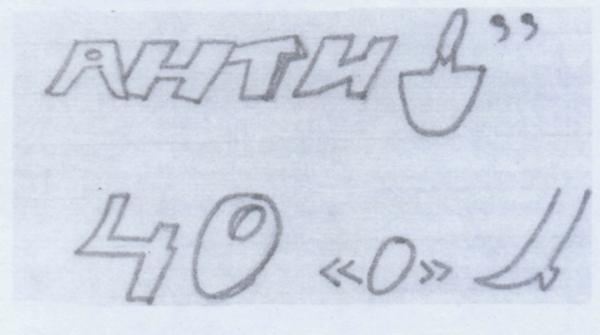 АНТИ ”
40 «О»